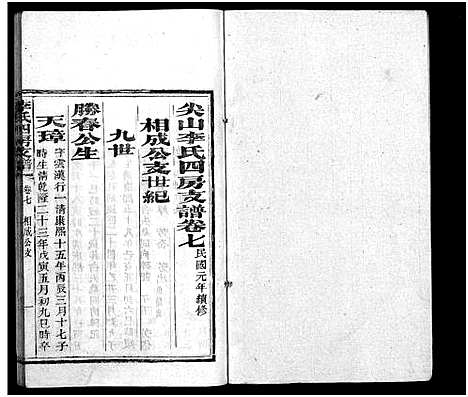 尖山李氏四房支譜卷七 民國元年續修
相成公支世紀
九世
勝春公生
天璋 字雲漢行一清康熙十五年丙辰三月十七子
時生清乾隆二十三年戊寅五月初九巳時卒
李氏四房支譜 卷七 相成公支